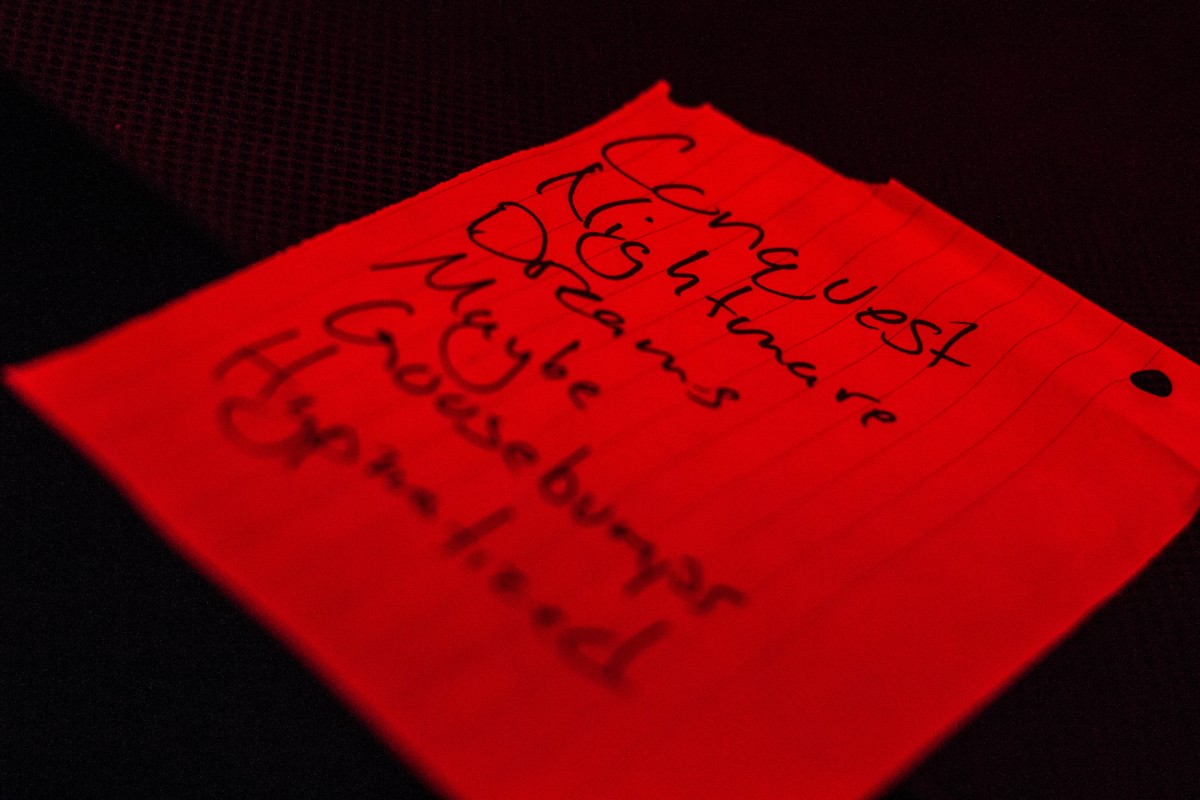 Conquest
Nightmare
Dreams
Maybe
Goosebumps
Hypnotized